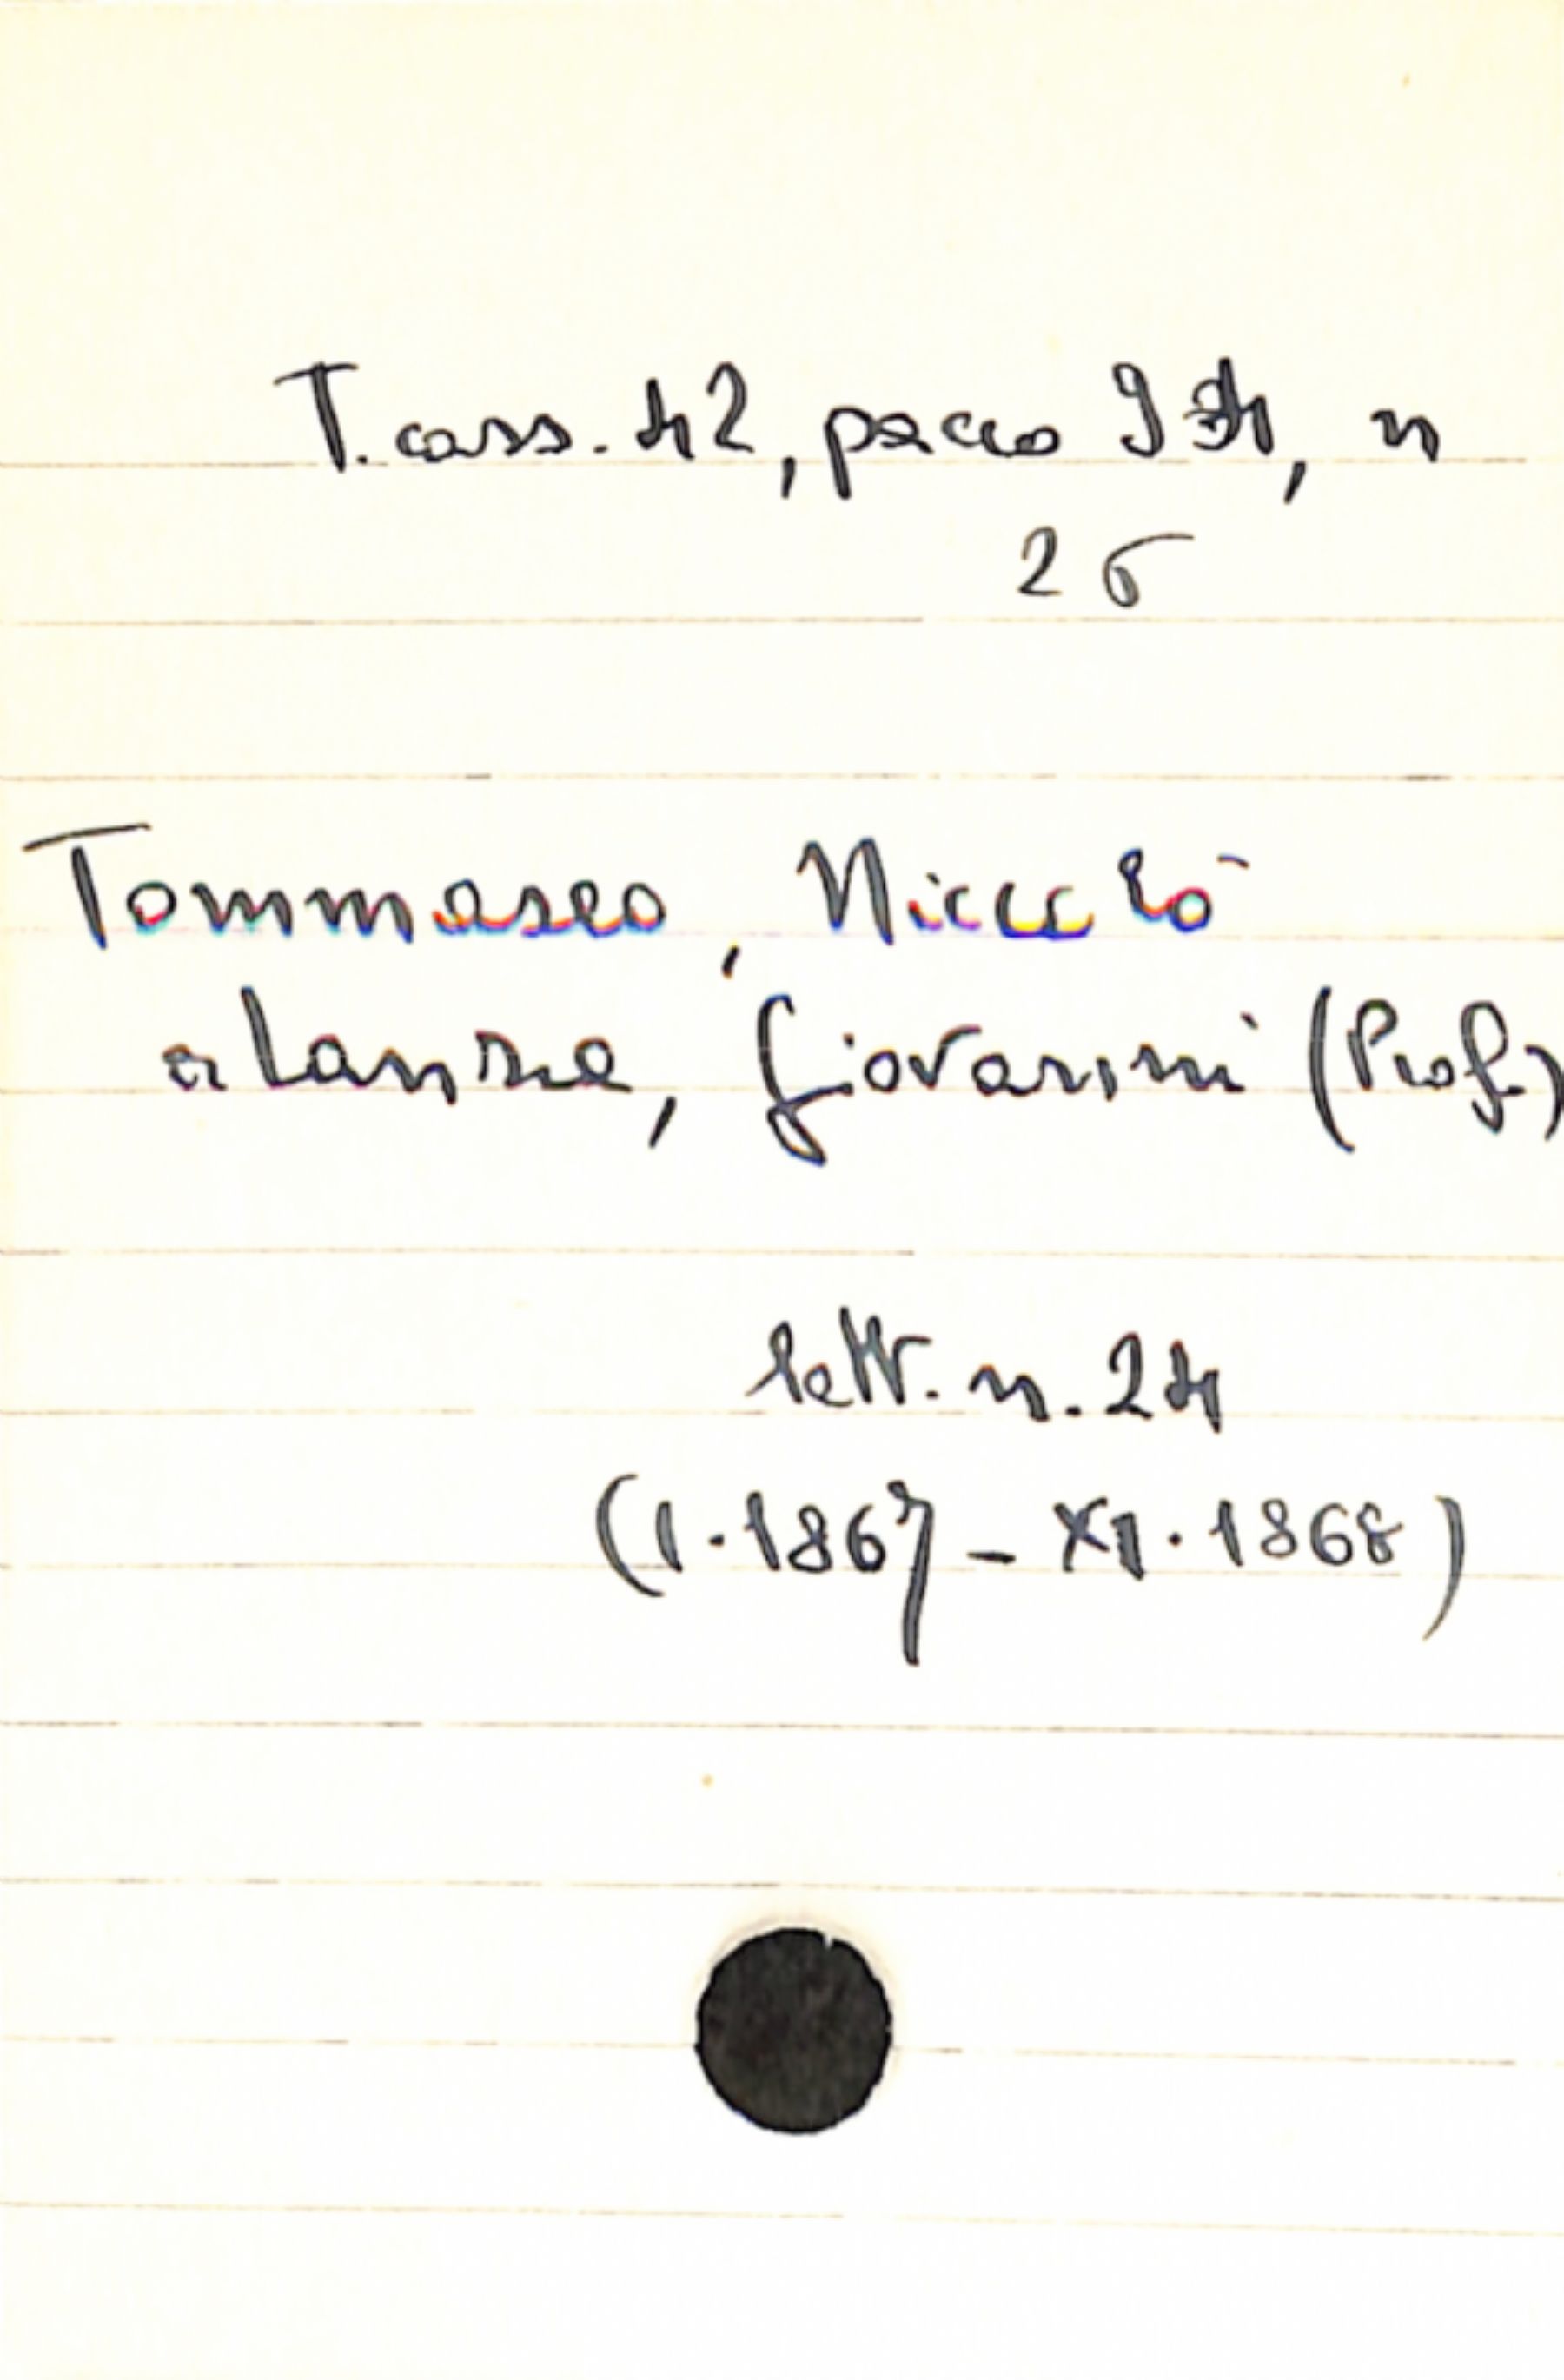 T. cass. 42, pacco 94, n
26
Tommaseo, Niccolò
a Lanza, Giovanni (Prof.)
lett. n. 24
(I. 1867 - XI. 1868)